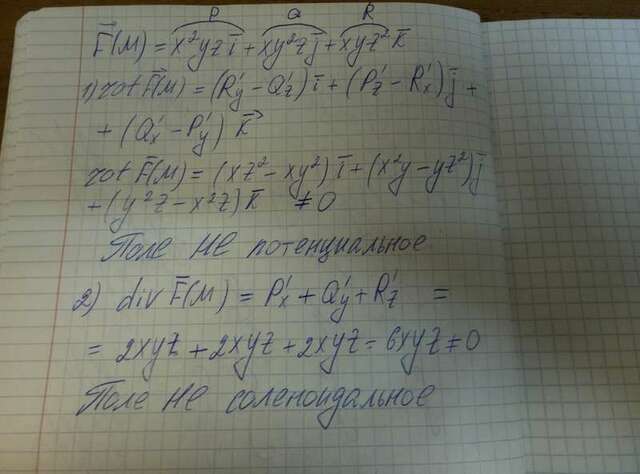 P Q R
F̄(M) = x²yz ī + xy²z j̄ + xyz² k̄
1) rot F̄(M) = (R'y − Q'z) ī + (P'z − R'x) j̄ +
+ (Q'x − P'y) k⃗
rot F̄(M) = (xz² − xy²) ī + (x²y − yz²) j̄
+ (y²z − x²z) k̄ ≠ 0
Поле не потенциальное
2) div F̄(M) = P'x + Q'y + R'z =
= 2xyz + 2xyz + 2xyz = 6xyz ≠ 0
Поле не соленоидальное